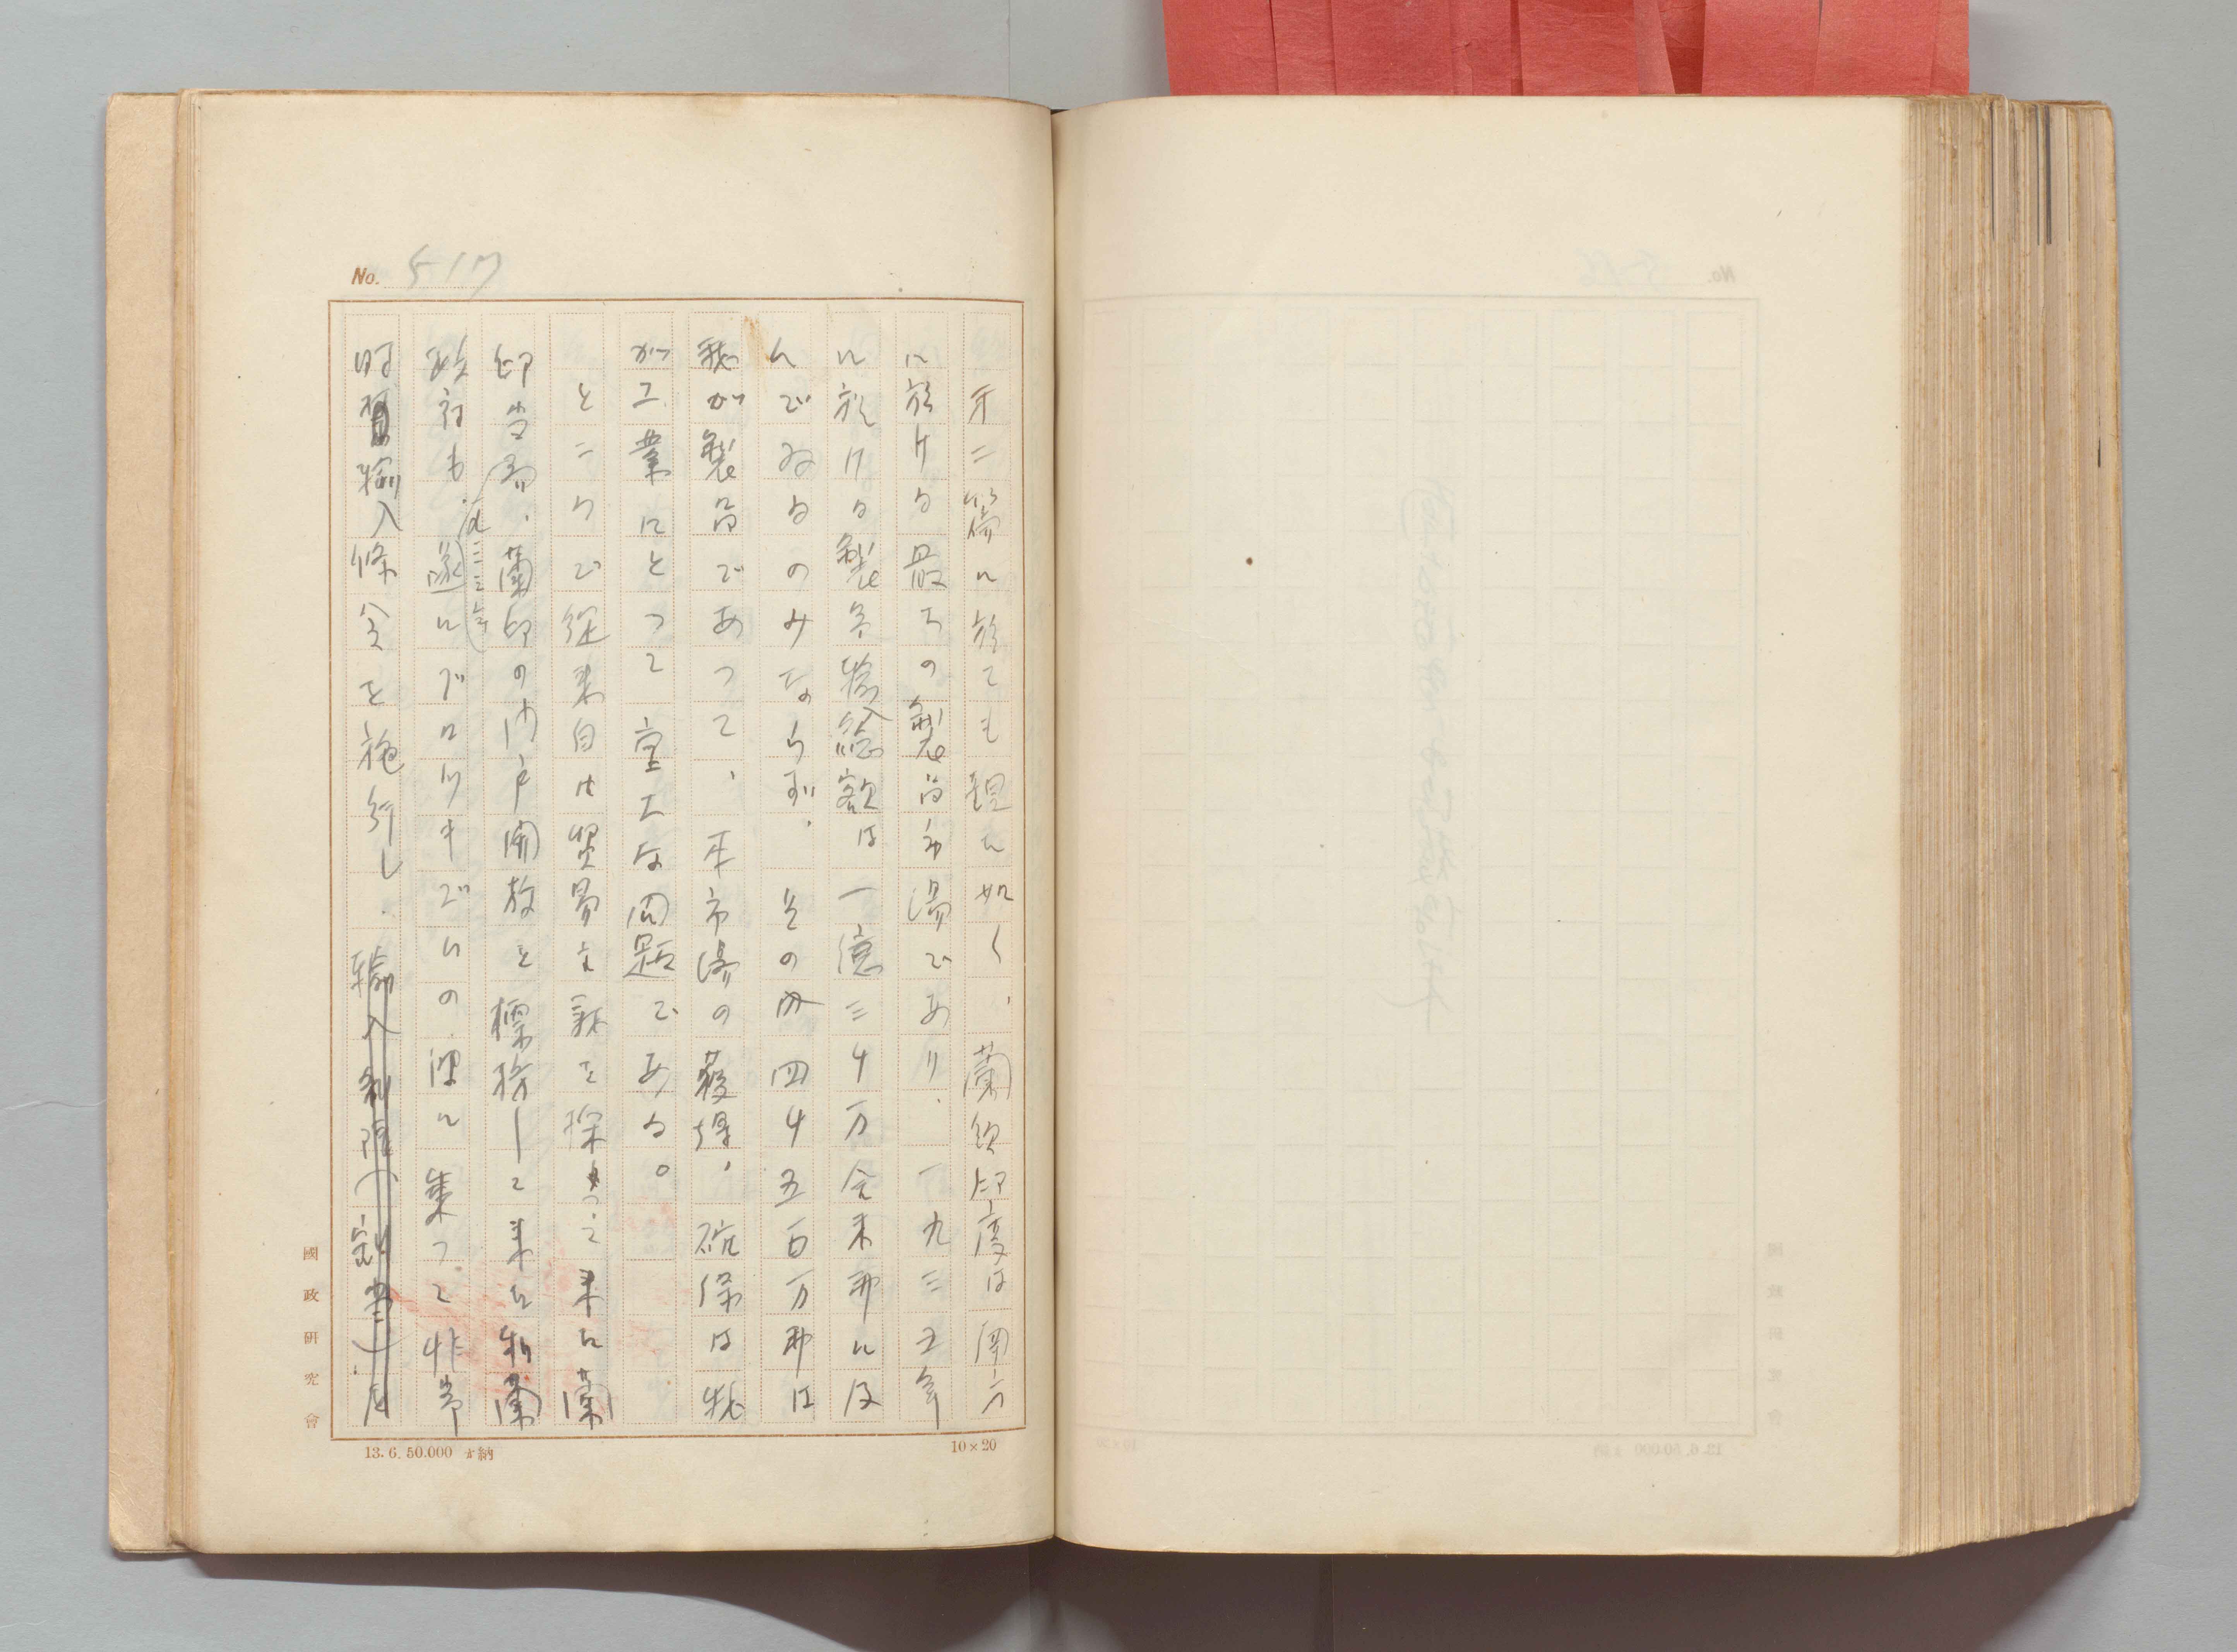 No. 517
才二篇に於ても詳述した如く、蘭領印度は関六
に於ける最高の製品市場であり、一九三五年
に於ける製品輸入総額は一億三千万余米弗に及
んでゐるのみならず、その内四千五百万弗は
我が製品であつて、本市場の獲得、確保は我
が工業にとつて重大な問題である。
ところで従来自由貿易主義を採つて来た蘭
印当局、蘭印の門戸開放を標榜して来た和蘭
政府も、遂にブロツキズムの渦に乗つて非常
(一九三三年)
時輸入條令を施行し、輸入制限(割当)を
國政研究會
13.6.50.000 納
10×20